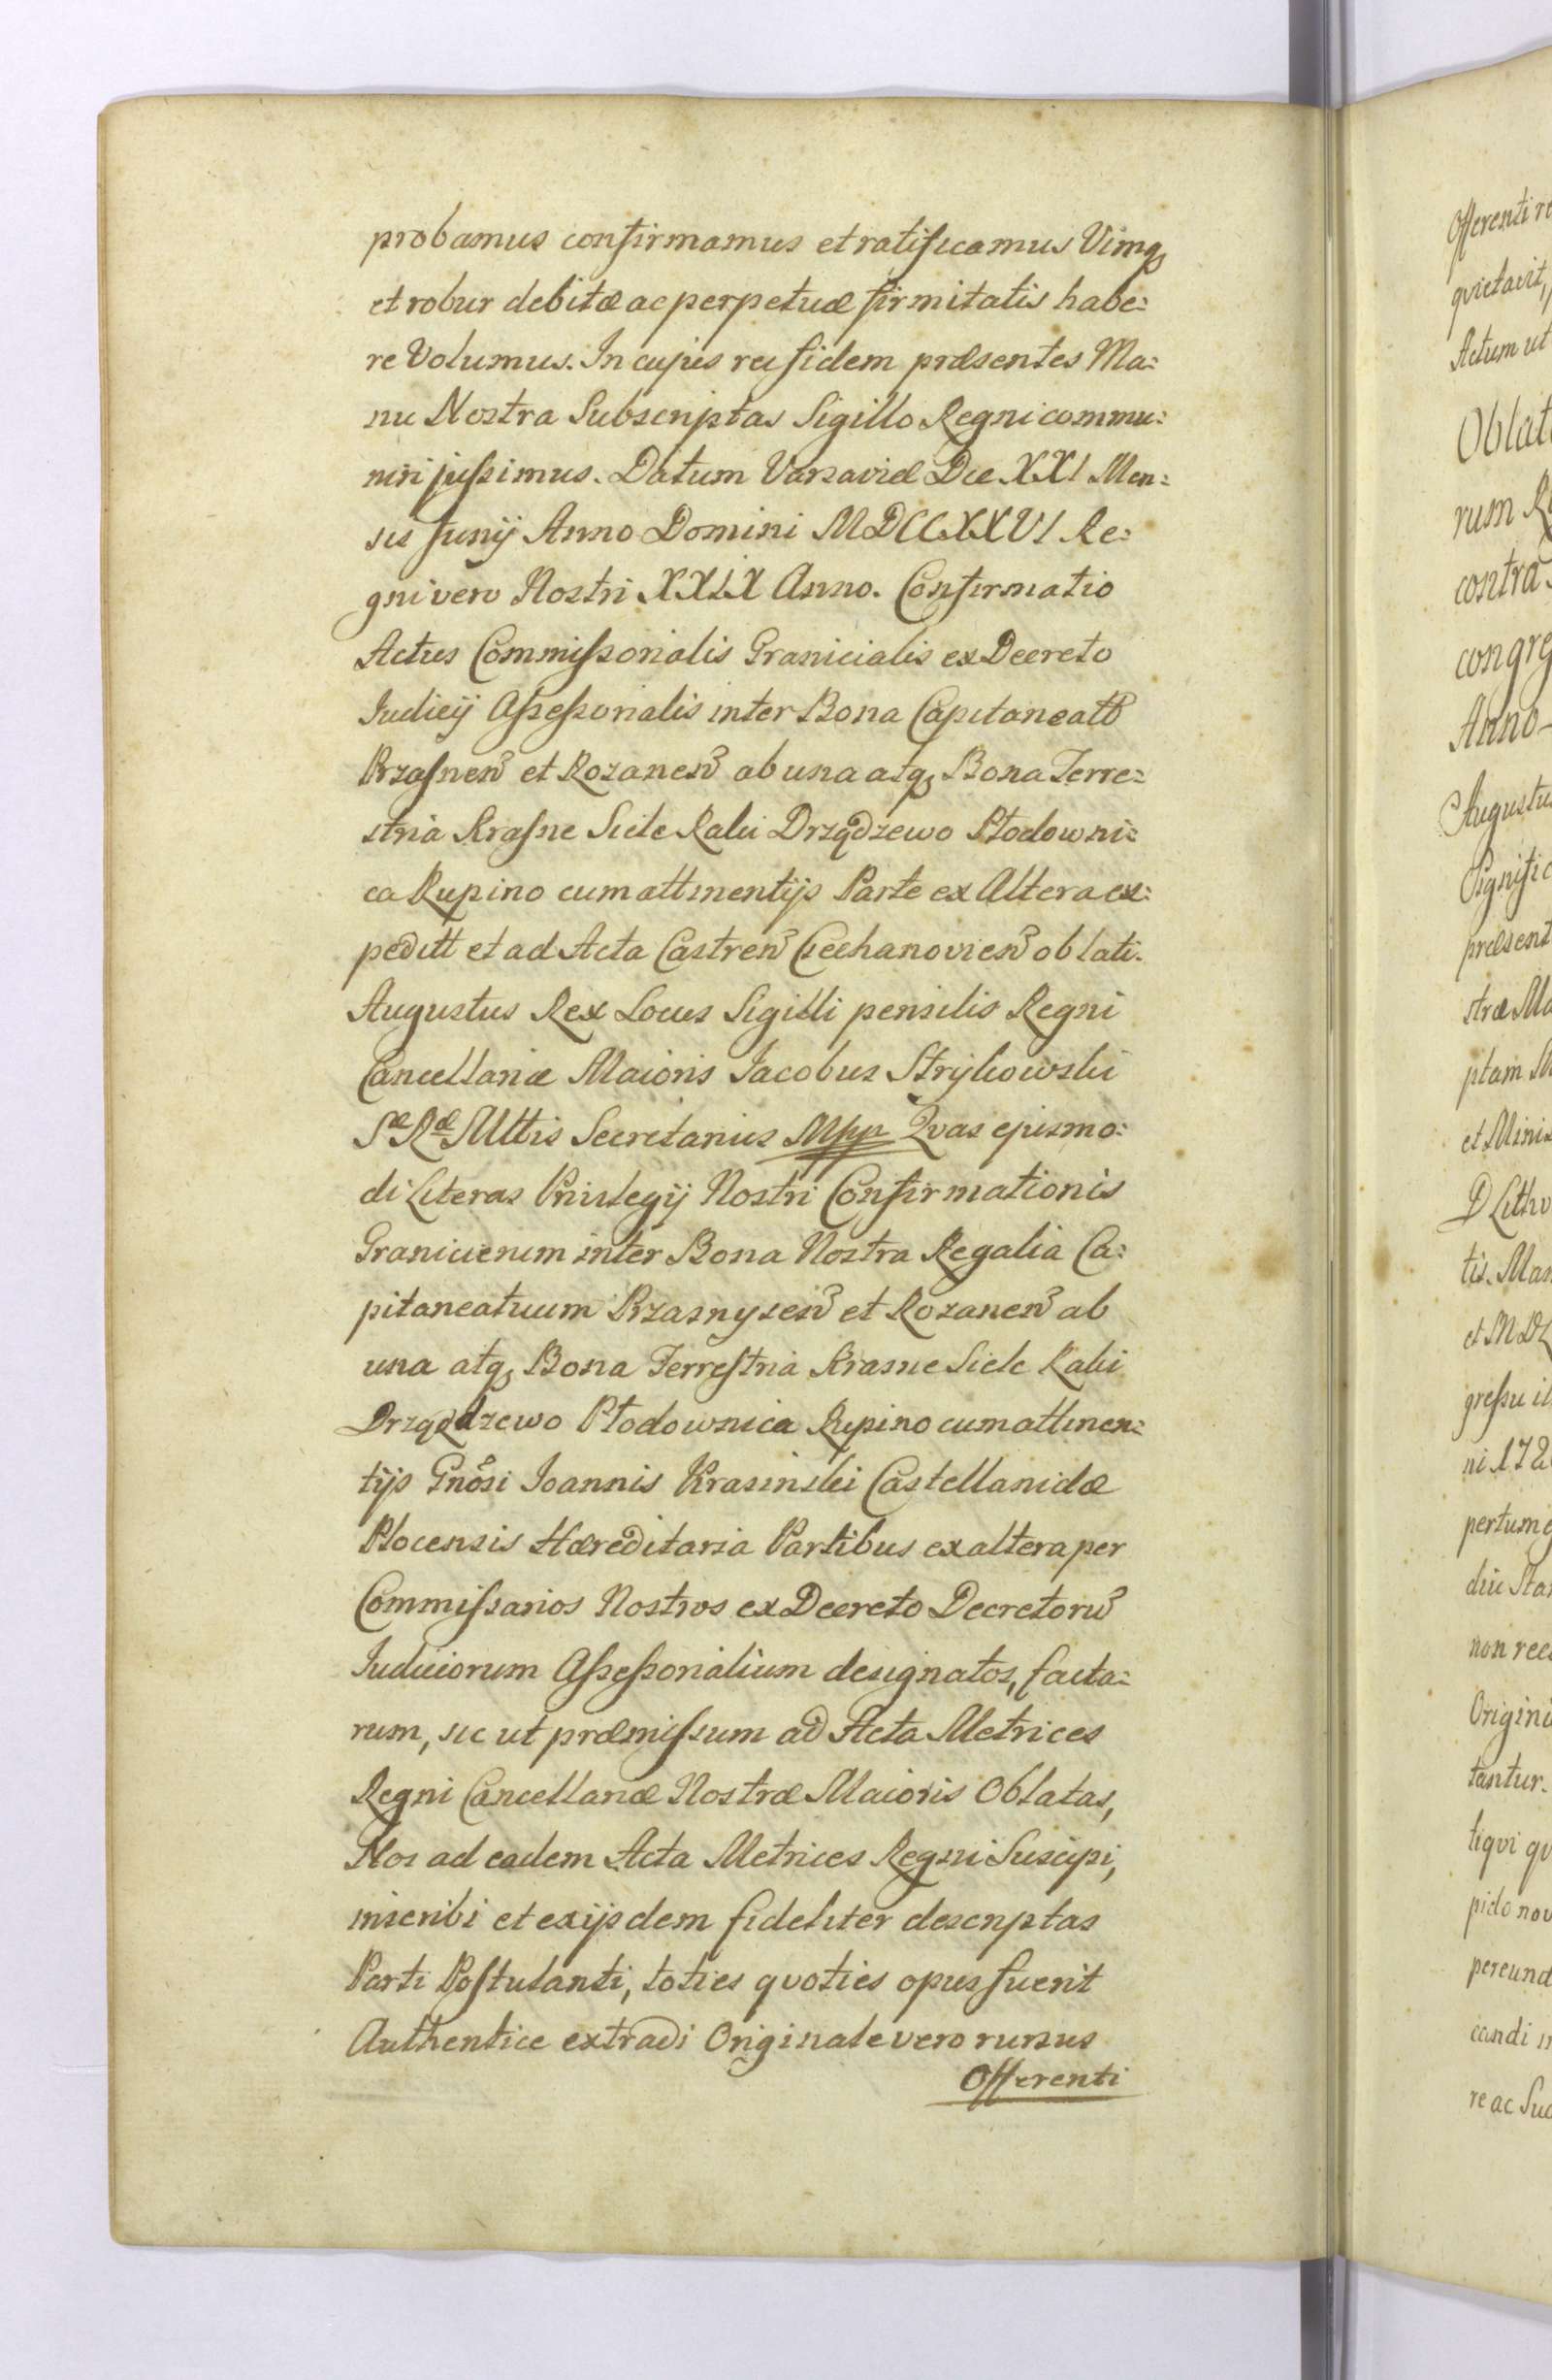 probamus confirmamus et ratificamus Vimq₃
et robur debitæ ac perpetuæ firmitatis habe:
re Volumus. In cujus rei fidem præsentes Ma:
nu Nostra Subscriptas Sigillo Regni commu:
niri jussimus. Datum Varsaviæ Die XXI Men:
sis Junij Anno Domini MDCCXXVI Re:
gni vero Nostri XXIX Anno. Confirmatio
Actus Commissorialis Granicialis ex Decreto
Judicij Assessorialis inter Bona Capitaneatt
Przasnen̄ et Rozanen̄ ab una atq₃ Bona Terre:
stria Krasne Siele Raki Drządzewo Płodowni:
ca Rupino cum attinentijs Parte ex Altera ex:
peditt et ad Acta Castren̄ Ciechanovien̄ oblati.
Augustus Rex Locus Sigilli pensilis Regni
Cancellariæ Maioris Jacobus Strykowski
Sæ Ræ Mttis Secretarius Mpp Qvas ejusmo:
di Literas Privilegij Nostri Confirmationis
Granicierum inter Bona Nostra Regalia Ca:
pitaneatuum Przasnysen̄ et Rozanen̄ ab
una atq₃ Bona Terrestria Krasne Siele Raki
Drządzewo Płodownica Rupino cum attinen:
tijs Gnosi Joannis Krasinski Castellanidæ
Plocensis Hæreditaria Partibus ex altera per
Commissarios Nostros ex Decreto Decretorū
Judiciorum Assessorialium designatos, facta:
rum, sic ut præmissum ad Acta Metrices
Regni Cancellariæ Nostræ Maioris Oblatas,
Nos ad eadem Acta Metrices Regni Suscipi,
inscribi et ex ijsdem fideliter descriptas
Parti Postulanti, toties qvoties opus fuerit
Authentice extradi Originale vero rursus
Offerenti
Offerenti re
qvietavit,
Actum ut
Oblat
rum
contra
congre
Anno
Augustus
Signific
præsent
stræ Ma
ptam
et Minis
D Lithv
tis. Man
et MDL
gressu il
ni 172
pertum
diu Sta
non rec
Origin
tantur.
tiqvi qv
pido nov
pereund
candi
re ac Suc